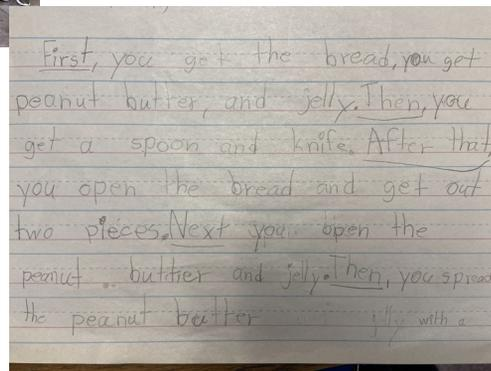 First, you get the bread, you get
peanut butter, and jelly. Then, you
get a spoon and knife. After that
you open the bread and get out
two pieces. Next you open the
peanut buttier and jelly. Then, you spread
the peanut butter jlly with a